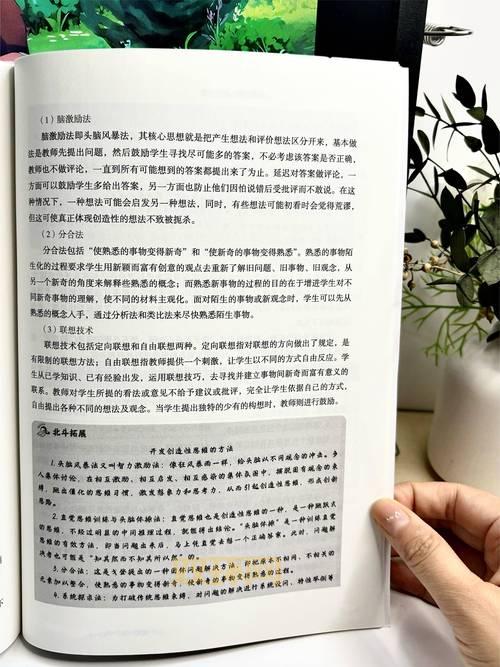 （1）脑激励法
脑激励法即头脑风暴法，其核心思想就是把产生想法和评价想法区分开来，基本做
法是教师先提出问题，然后鼓励学生寻找尽可能多的答案，不必考虑该答案是否正确，
教师也不做评论，一直到所有可能想到的答案都提出来了为止。延迟对答案做评论，一
方面可以鼓励学生多给出答案，另一方面也防止他们因怕说错后受批评而不敢说。在这
种情况下，一种想法可能会启发另一种想法，同时，有些想法可能初看时会觉得荒谬，
但这可使真正体现创造性的想法不致被扼杀。
（2）分合法
分合法包括“使熟悉的事物变得新奇”和“使新奇的事物变得熟悉”。熟悉的事物陌
生化的过程要求学生用新颖而富有创意的观点去重新了解旧问题、旧事物、旧观念，从
另一个新奇的角度来解释些熟悉的概念；而熟悉新事物的过程的目的在于增进学生对不
同新奇事物的理解，使不同的材料主观化。面对陌生的事物或新观念时，学生可以先从
熟悉的概念入手，通过分析法和类比法来尽快熟悉陌生事物。
（3）联想技术
联想技术包括定向联想和自由联想两种。定向联想指对联想的方向做出了规定，是
有限制的联想方法；自由联想指教师提供一个刺激，让学生以不同的方式自由反应。学
生从已学知识、已有经验出发，运用联想技巧，去寻找并建立事物间新奇而富有意义的
联系。教师对学生所提的看法或意见不给予建议或批评，完全让学生依据自己的方式，
自由提出各种不同的想法及观念。当学生提出独特的少有的构想时，教师则进行鼓励。
北斗拓展
开发创造性思维的方法
1.头脑风暴法又叫智力激励法：像狂风暴雨一样，给头脑以不同观念的冲击。多
人集体讨论，在相互激励、相互启发、相互感染的集体氛围中，摆脱固有观念的束
缚，跳出僵化的思维习惯，激发想象力和思考力，从而引起创造性思维，形成创新
思路。
2.直觉思维训练与头脑体操法：直觉思维也是创造性思维的一种，是一种跳跃式
思维，不经过明显的中间推理过程，就能得出结论。“头脑体操”是一种训练直觉
思维的有效方法，即当问题出来后，马上凭直觉去猜一个正确答案。此时，问题解
决者也可能是“知其然而不知其所以然”的。
3.分合法：这是戈登提出的一种团体问题解决方法，即把原本不相同、不相关的
元素加以整合，使熟悉的事物变得新奇，使新奇的事物变得熟悉的过程。
4.系统探求法：为打破传统思维束缚，对问题的解决进行系统设问，特性举例等